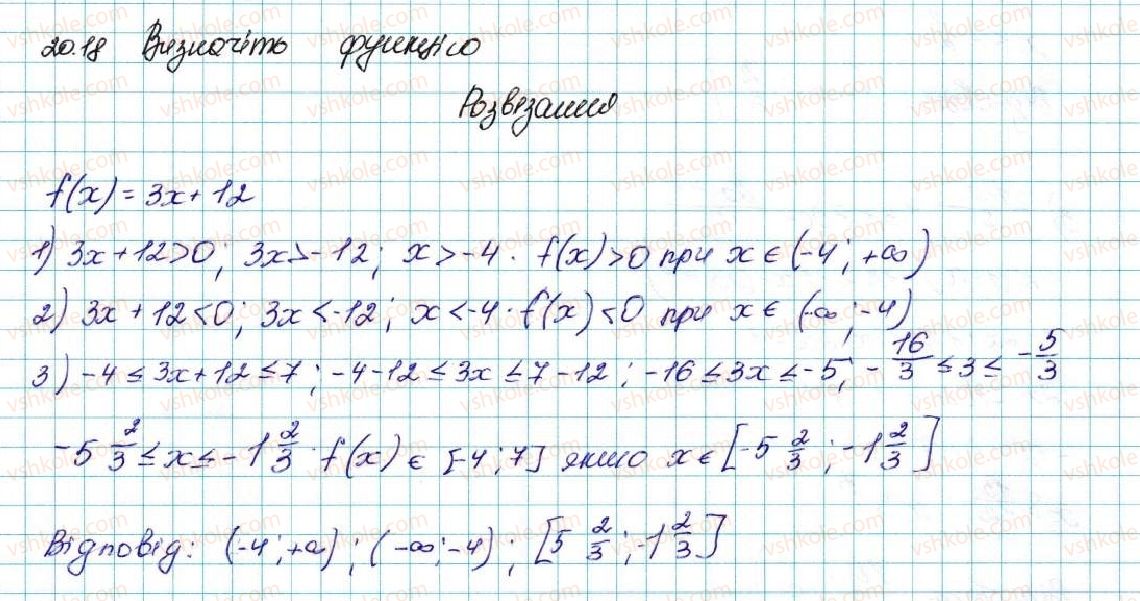 20.18 Визначіть функцію
Розвязання
f(x) = 3x + 12
1) 3x + 12 > 0; 3x > -12; x > -4. f(x) > 0 при x ∈ (-4; +∞)
2) 3x + 12 < 0; 3x < -12; x < -4. f(x) < 0 при x ∈ (-∞; -4)
3) -4 ≤ 3x + 12 ≤ 7; -4 - 12 ≤ 3x ≤ 7 - 12; -16 ≤ 3x ≤ -5; -16/3 ≤ 3 ≤ -5/3
-5 2/3 ≤ x ≤ -1 2/3. f(x) ∈ [-4; 7] якщо x ∈ [-5 2/3; -1 2/3]
Відповід: (-4; +∞); (-∞; -4); [5 2/3; -1 2/3]